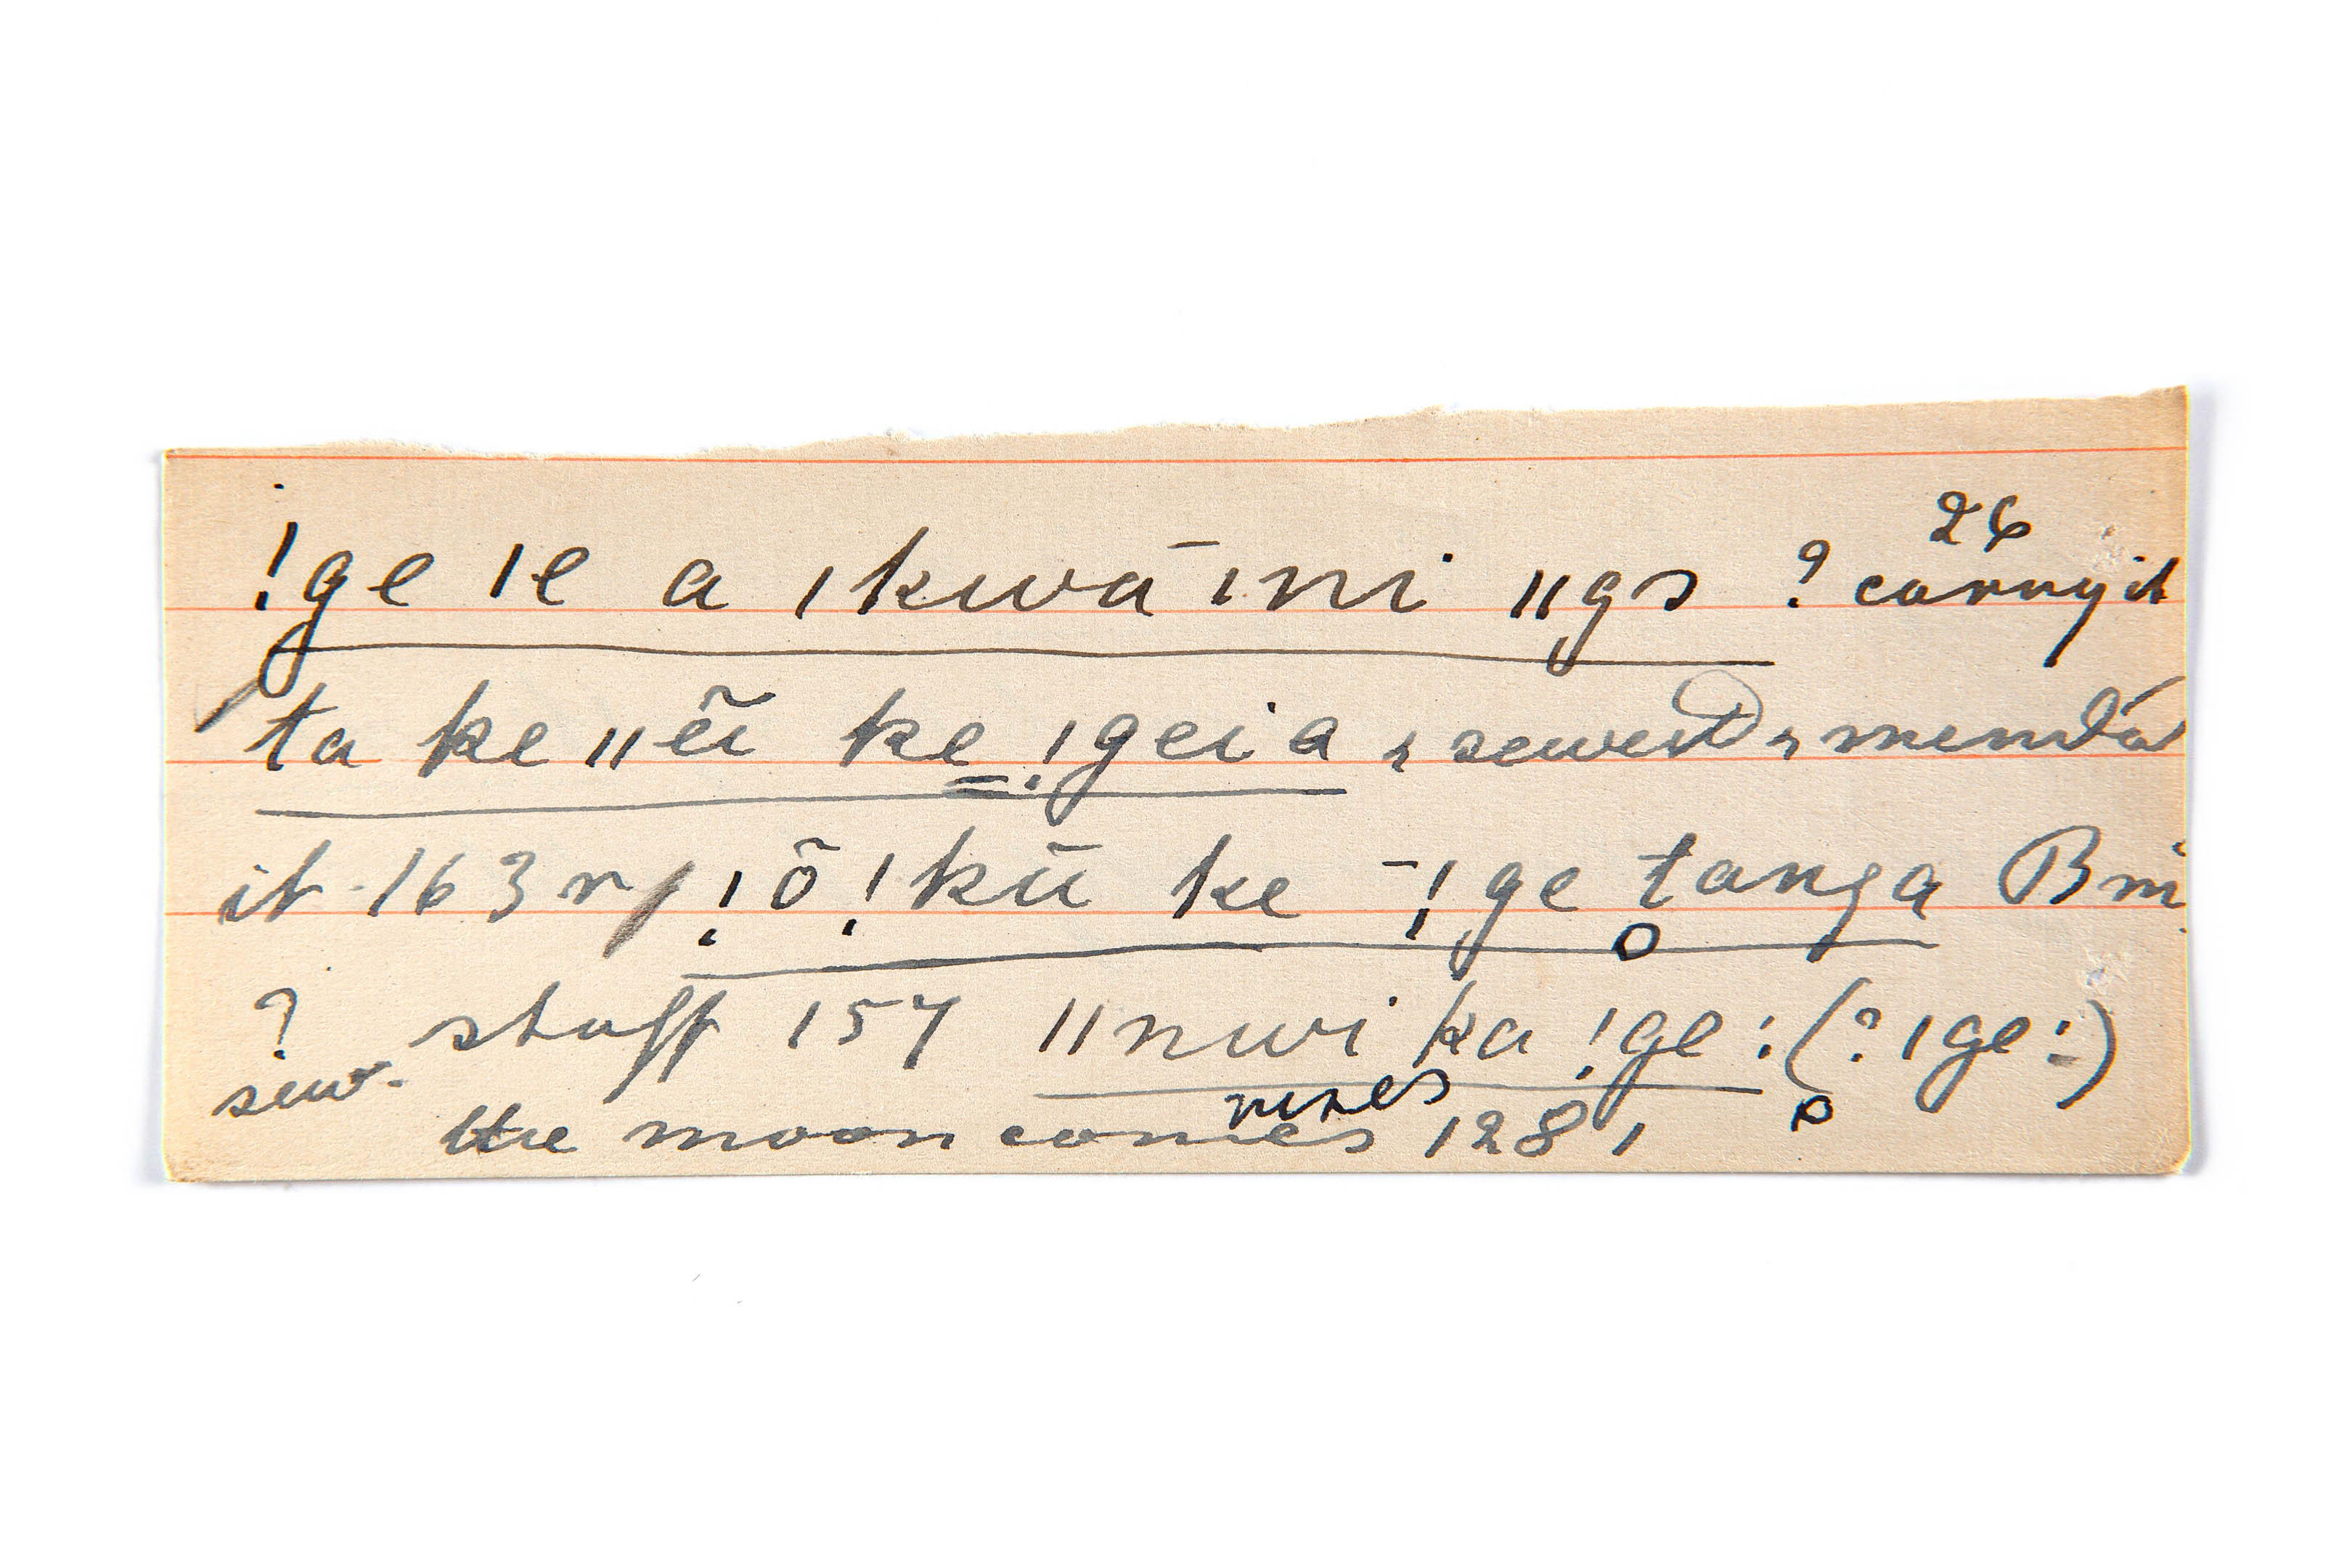 26
!ge ǀe a ǀkwā ǀni ǁgs ? carry it
ta ke ǁẽĩ ke !geia sewed mended
it 163 r/ !õ !kũ ke ‾!ge tanga Bm
? stuff 157 ǁnwi ka !ge: (? ǀge:)
sew.
rises
the moon comes 128